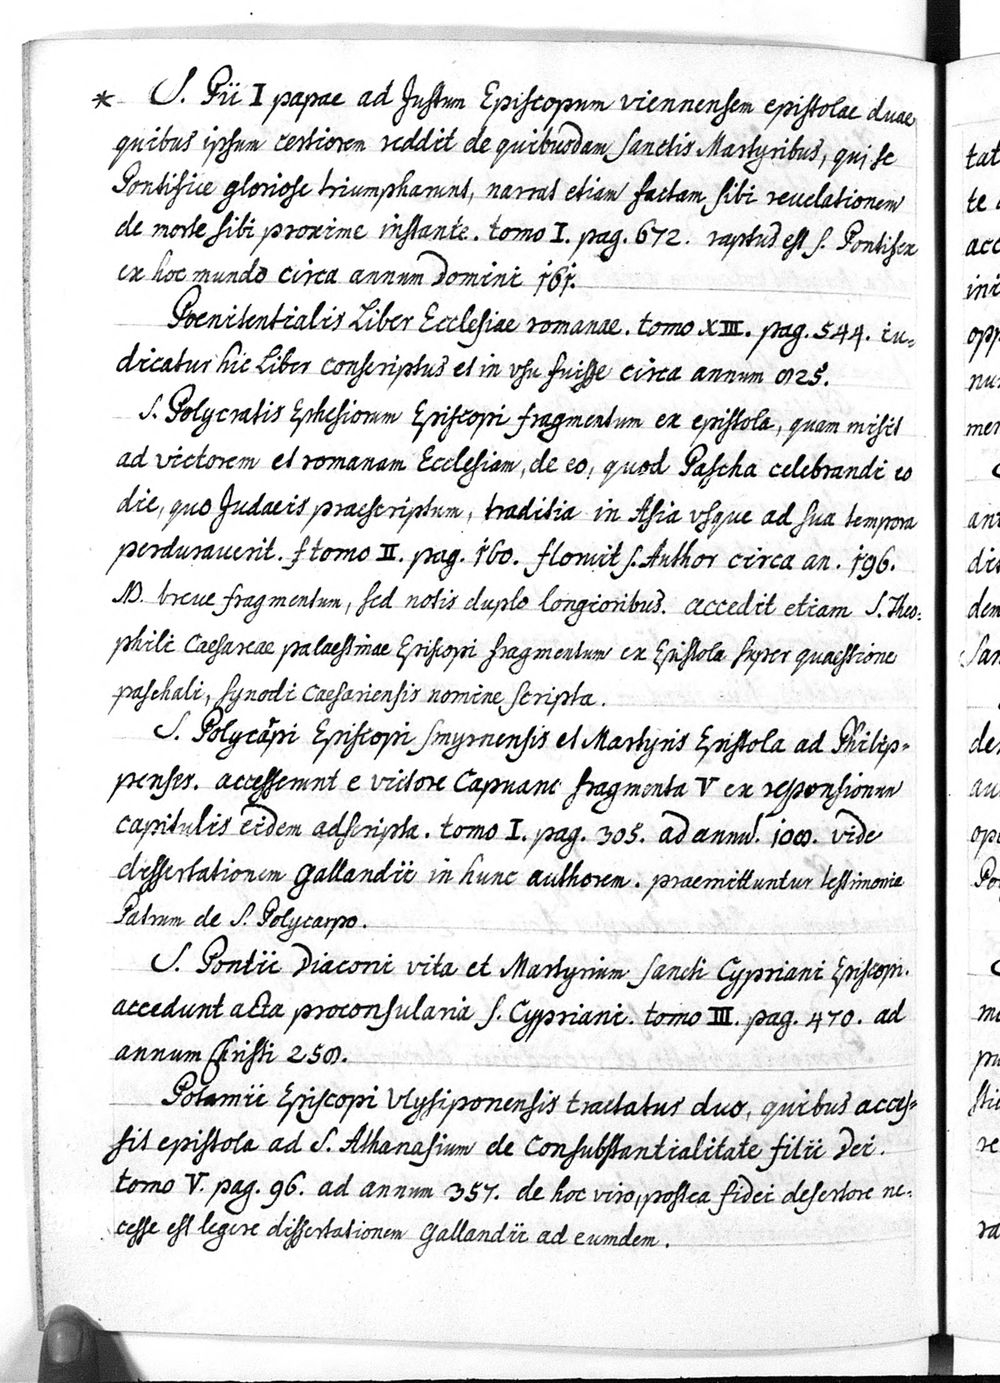 * S. Pii I papae ad Justum Episcopum viennensem epistolae duae
quibus ipsum certiorem reddit de quibusdam sanctis Martyribus, qui se
Pontifice gloriose triumpharunt, narrat etiam factam sibi revelationem
de morte sibi proxime instante. tomo I. pag. 672. raptus est S. Pontifex
ex hoc mundo circa annum Domini 161.
Poenitentialis Liber Ecclesiae romanae. tomo XIII. pag. 544. iu-
dicatur hic Liber conscriptus et in usu fuisse circa annum
S. Polycratis Ephesiorum Episcopi fragmentum ex epistola, quam misit
ad victorem et romanam Ecclesiam, de eo, quod Pascha celebrandi eo
die, quo Judaeis praescriptum, traditia in Asia usque ad sua tempora
perduraverit. tomo II. pag. 160. floruit S. Author circa an. 196.
breve fragmentum, sed notis duplo longioribus. accedit etiam S. Theo-
phili Caesareae palaestinae Episcopi fragmentum ex Epistola super quaestione
paschali, synodi Caesariensis nomine scripta.
S. Polycarpi Episcopi Smyrnensis et Martyris Epistola ad Philip-
penses. accesserunt e victore Capuano fragmenta V ex responsionum
capitulis eidem adscripta. tomo I. pag. 305. ad annum 108. vide
dissertationem Gallandii in hunc authorem. praemittuntur testimonia
Patrum de S. Polycarpo.
S. Pontii Diaconi vita et Martyrium sancti Cypriani Episcopi.
accedunt acta proconsularia S. Cypriani. tomo III. pag. 470. ad
annum Christi 258.
Potamii Episcopi Ulysiponensis tractatus duo, quibus acces-
sit epistola ad S. Athanasium de Consubstantialitate filii Dei.
tomo V. pag. 96. ad annum 357. de hoc viro, postea fidei desertore ne-
cesse est legere dissertationem Gallandii ad eumdem.